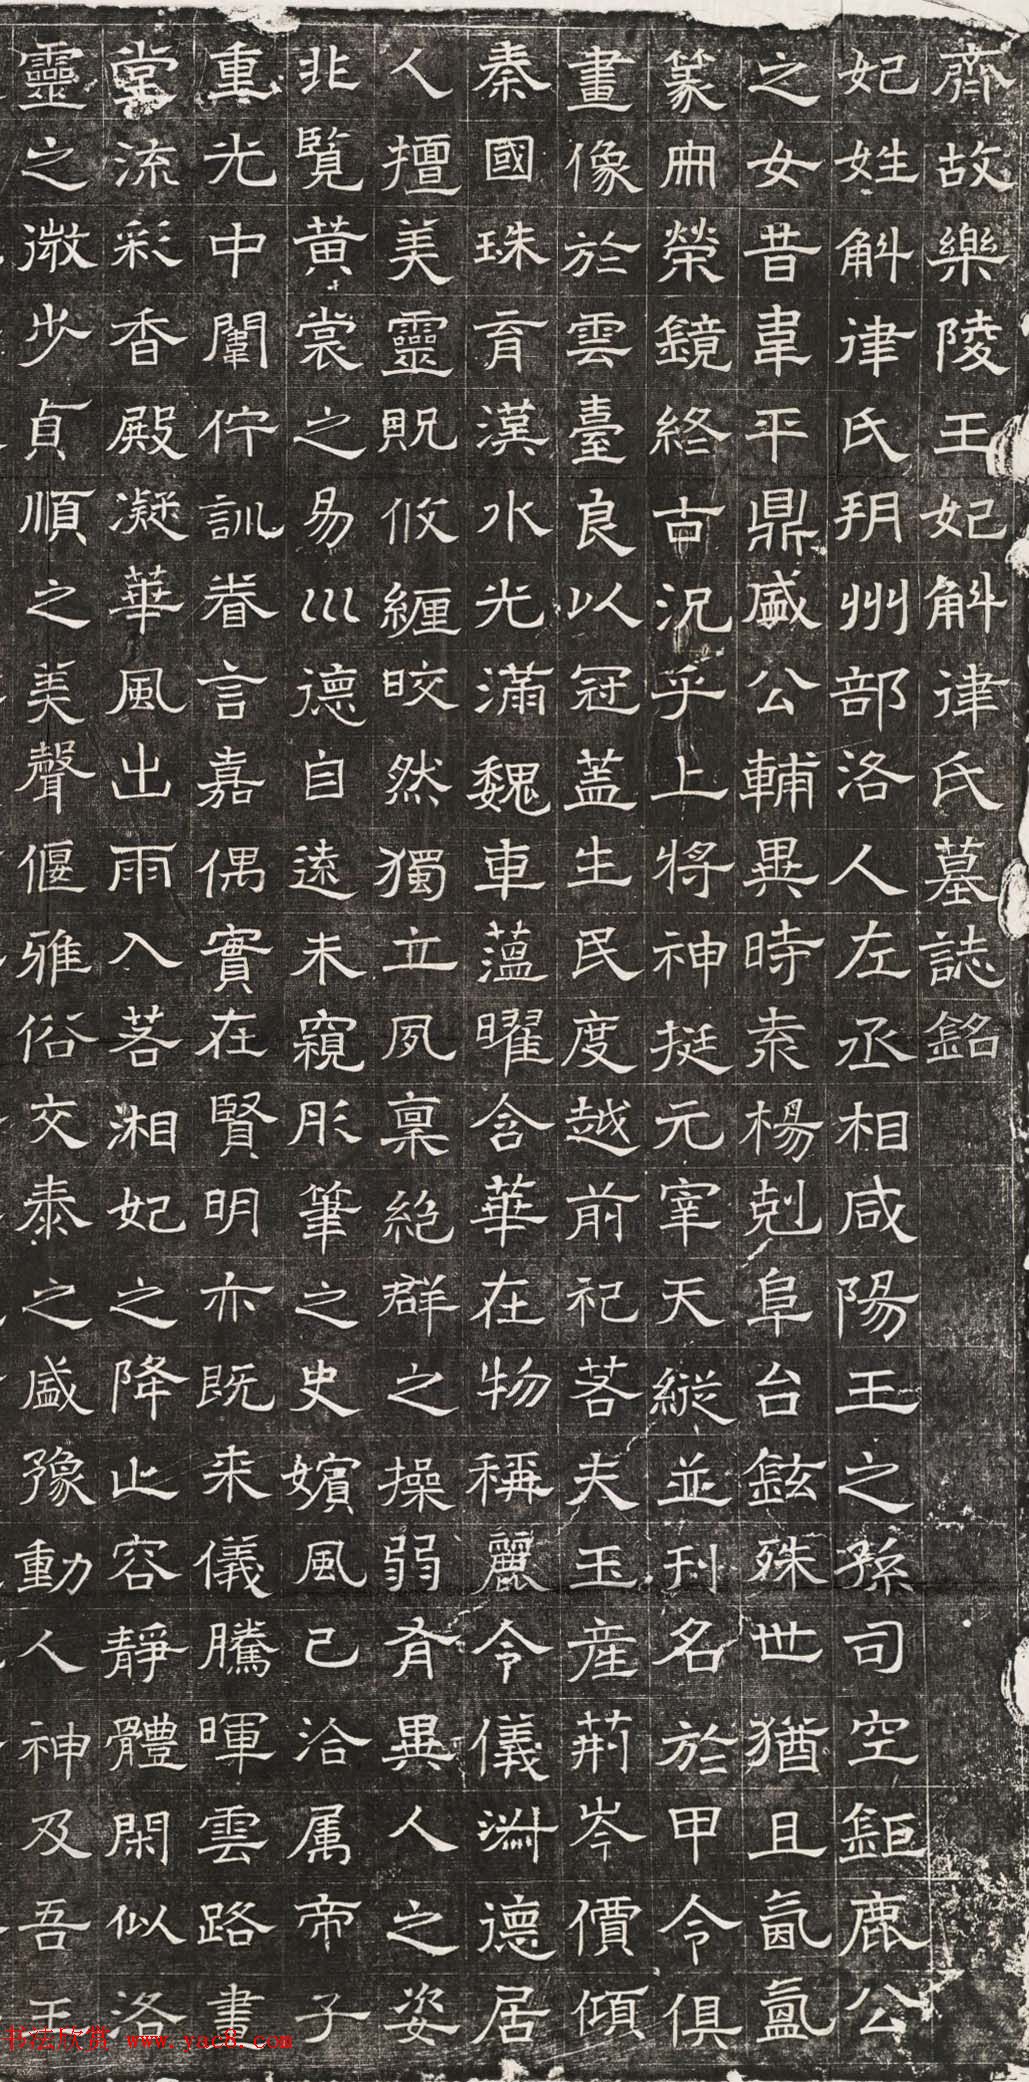 齊故樂陵王妃斛律氏墓誌銘
妃姓斛律氏朔州部洛人左丞相咸陽王之孫司空鉅鹿公
之女昔韋平鼎盛公輔異時索楊剋阜台鉉殊世猶且氤氳
篆冊榮鏡終古況乎上將神挺元宰天縱並刊名於甲令俱
畫像於雲臺良以冠蓋生民度越前祀若夫玉產荊岑價傾
秦國珠育漢水光滿魏車蘊曜含華在物稱麗令儀淑德居
人擅美靈貺攸纏皎然獨立夙稟絕群之操弱有異人之姿
非覽黃裳之易巛德自遠未窺彤筆之史嬪風已洽属帝子
重光中闈佇訓眷言嘉偶實在賢明亦既来儀騰暉雲路畫
堂流彩香殿凝華風出雨入若湘妃之降止容靜體閑似洛
靈之微步貞順之美聲偃雅俗交泰之盛豫動人神及吾王
书法欣赏 www.yac8.com